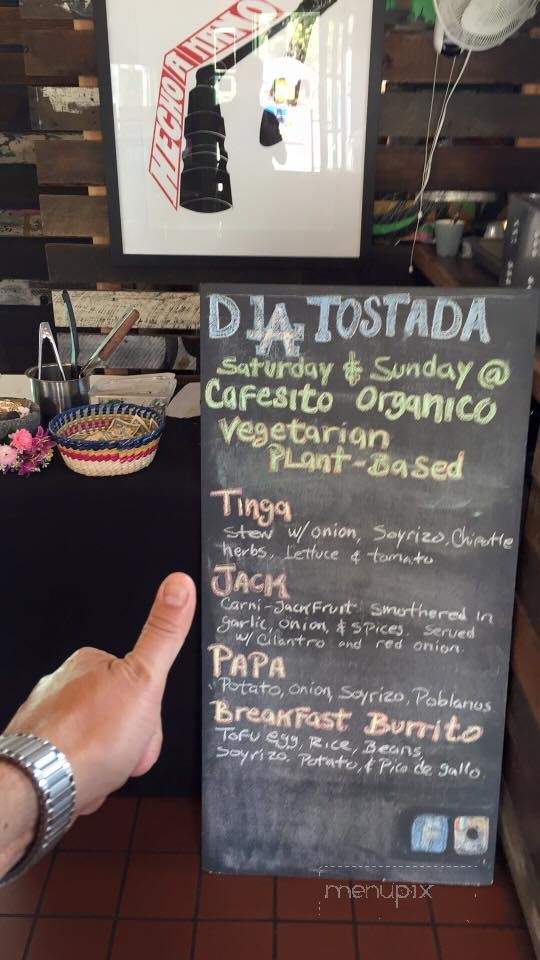 HECHO A MANO
D LA TOSTADA
Saturday & Sunday @
Cafesito Organico
Vegetarian
Plant-Based
Tinga
Stew w/ onion, Soyrizo, Chipotle
herbs, Lettuce & tomato
JACK
Carni-Jackfruit smothered in
garlic, onion, & spices. Served
w/ Cilantro and red onion.
PAPA
Potato, onion, Soyrizo, Poblanos
Breakfast Burrito
Tofu egg, Rice, Beans,
Soyrizo, Potato, & Pico de gallo
menupix